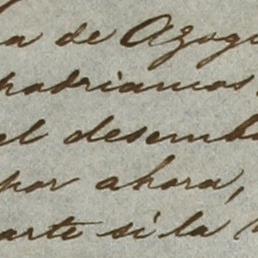 a de Azogu
podriamos
el desemb
por ahora,
arte si la